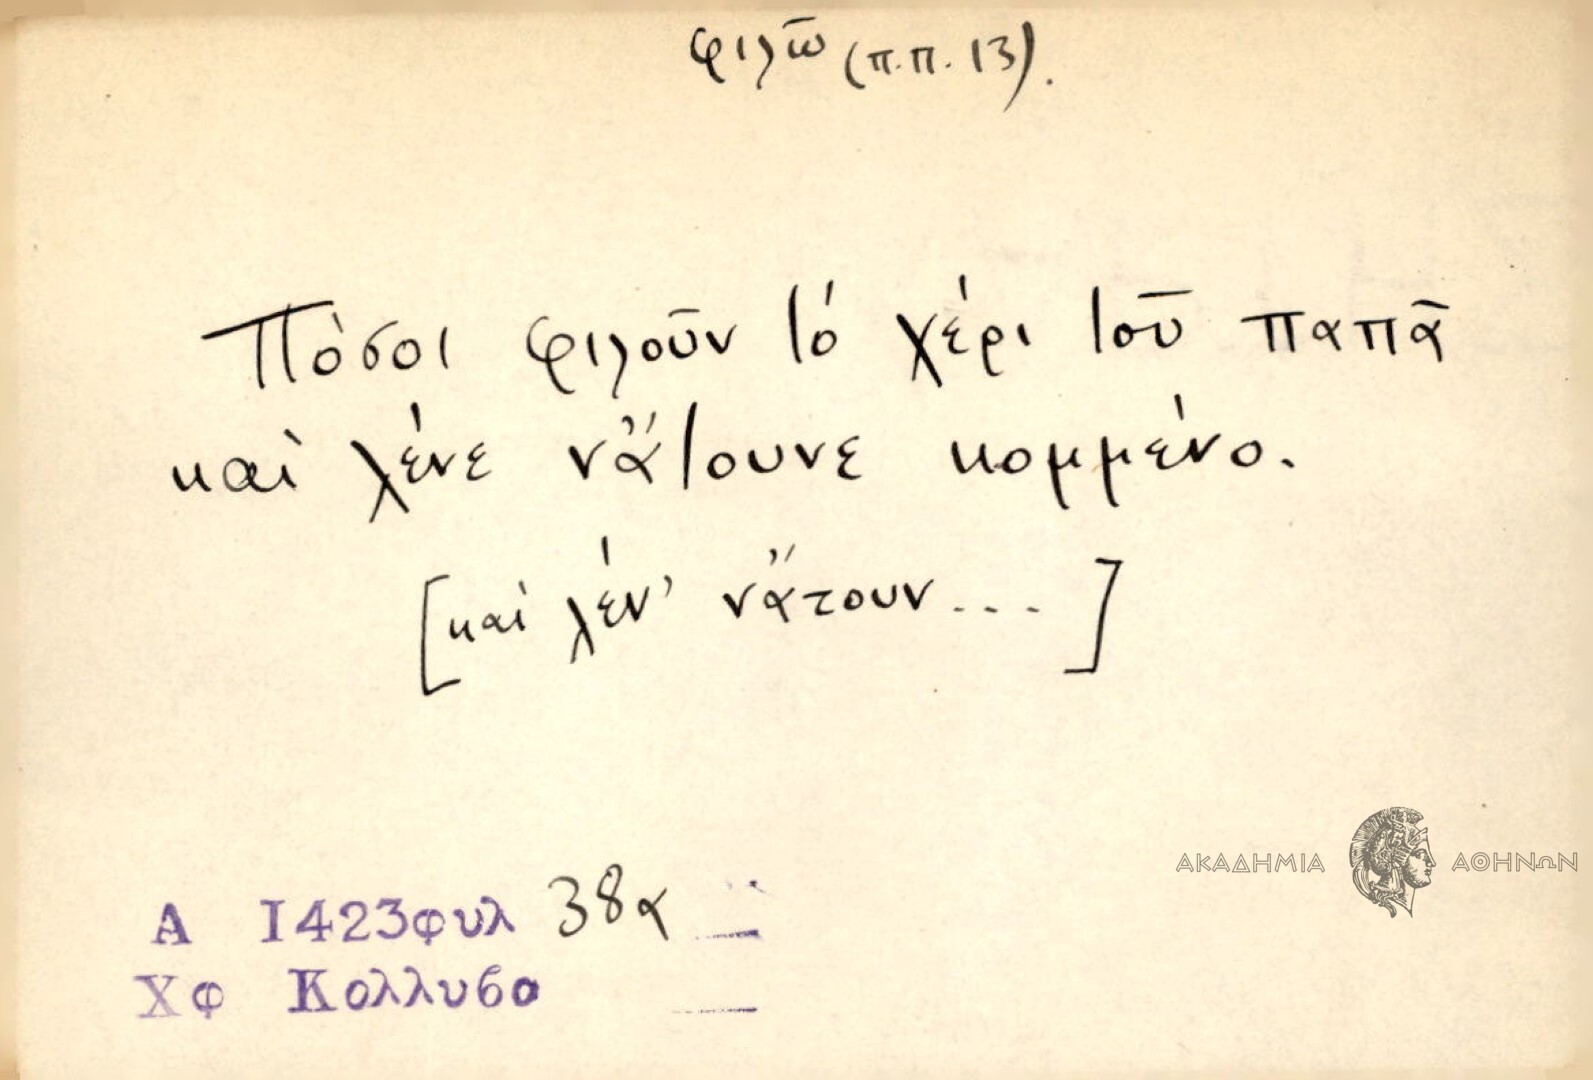 φιλῶ (π.π. 13).
Πόσοι φιλοῦν τό χέρι τοῦ παπᾶ
καὶ λένε νἄτουνε κομμένο.
[καὶ λέν' νἄτουν....]
Α 1423φυλ 38α
Χφ Κολλυβα
ΑΚΑΔΗΜΙΑ ΑΘΗΝΩΝ